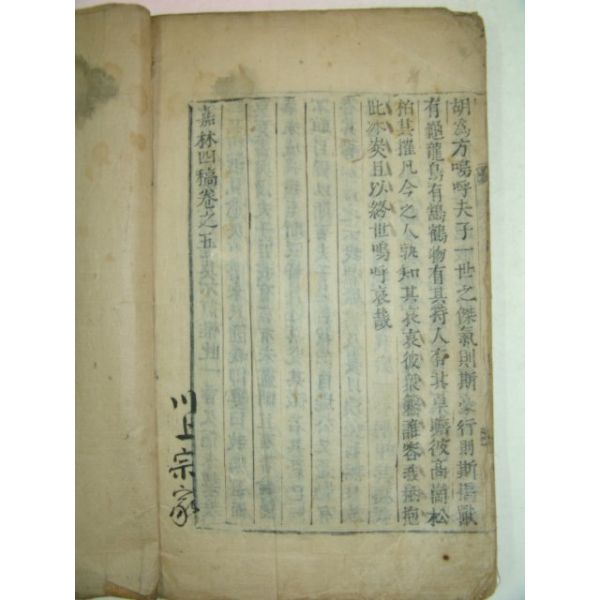 胡爲方嗚呼夫子一世之傑氣則斯豪行則斯獸
有龜龍鳥有鸞鶴物有其特人有其卓瞻彼高崗松
柏其摧凡今之人孰知其哀哀彼 誰容我 抱
此冰炭且以終世嗚呼哀哉
嘉林四稿卷之五
川上宗家